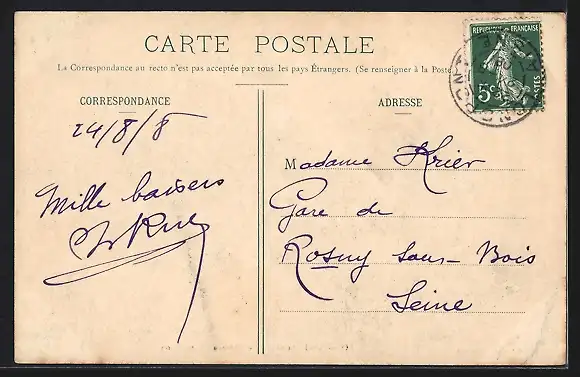 CARTE POSTALE
La Correspondance au recto n'est pas acceptée par tous les pays Étrangers. (Se renseigner à la Poste
RÉPUBLIQUE FRANÇAISE
5c
POSTES
CORRESPONDANCE
ADRESSE
24/8/8
Mille baisers
Madame Krier
Gare de
Rosny Sous-Bois
Seine